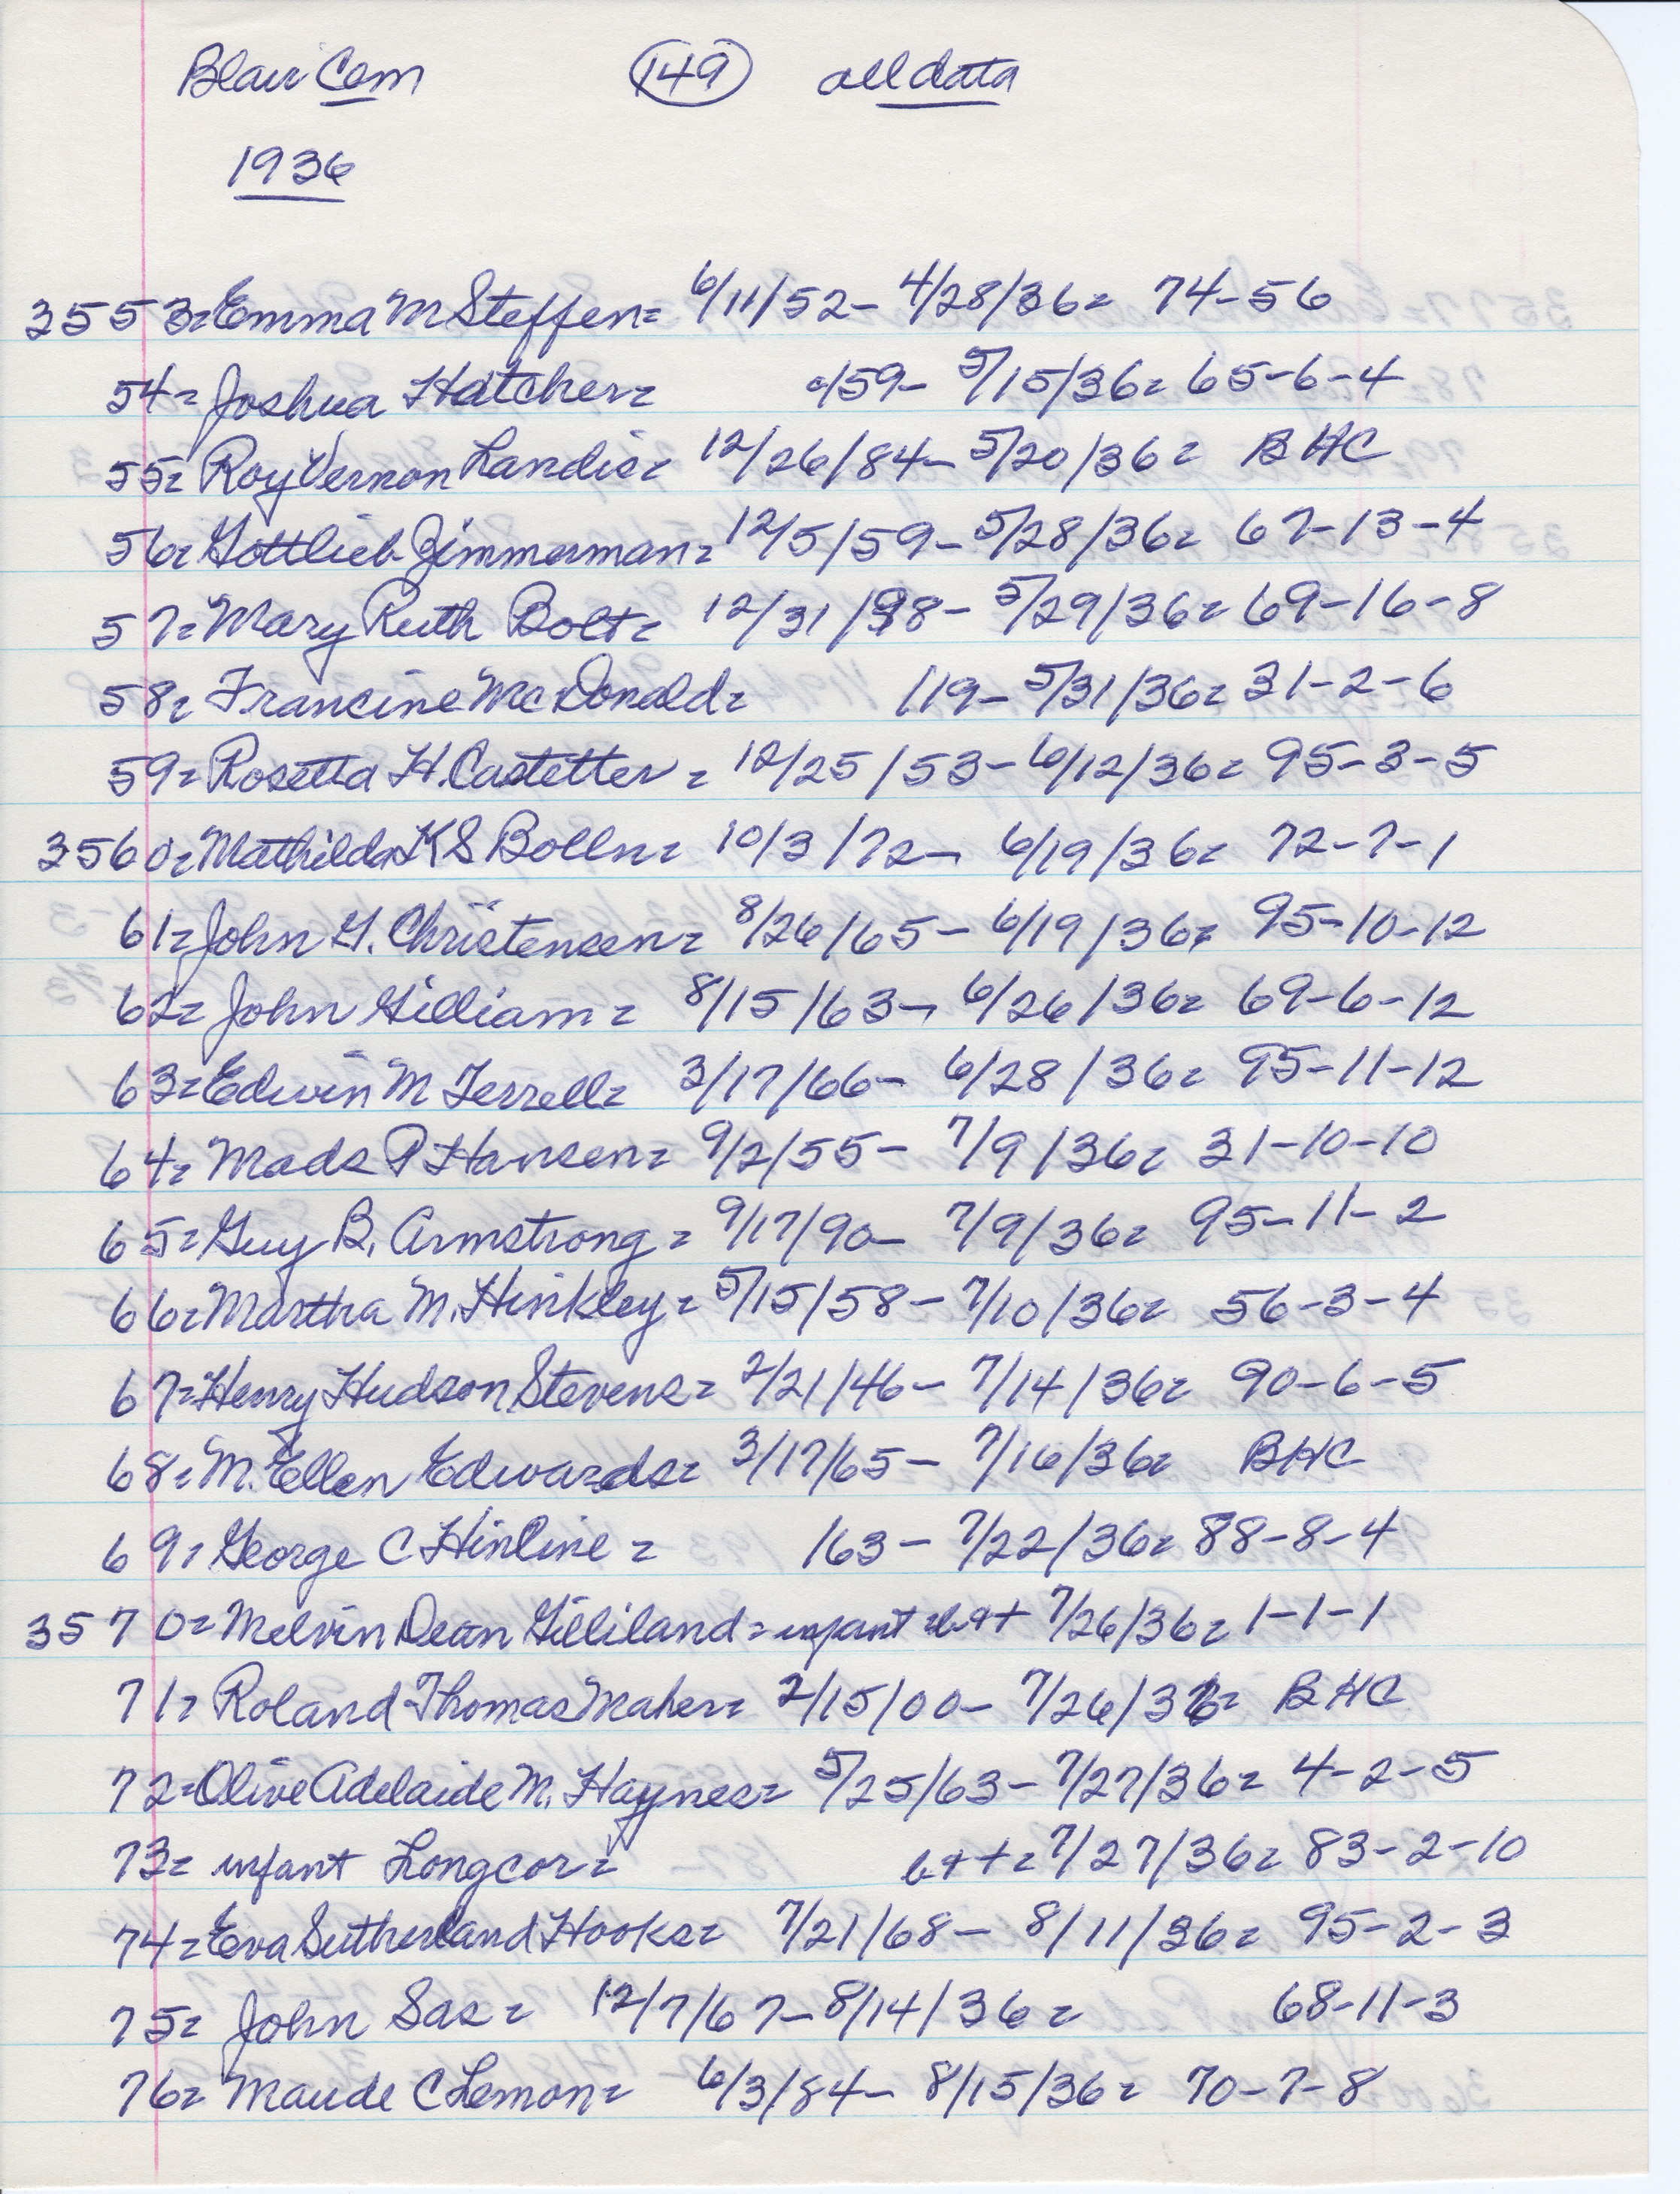 Blair Cem 149 all data
1936
3553= Emma M Steffen= 6/11/52- 4/28/36= 74-56
54= Joshua Hatcher= /59- 5/15/36= 65-6-4
55= Roy Vernon Landis= 12/26/84- 5/20/36= BHC
56= Gottlieb Zimmerman= 12/5/59- 5/28/36= 67-13-4
57= Mary Ruth Bolt= 12/31/98- 5/29/36= 69-16-8
58= Francine McDonald= /19- 5/31/36= 31-2-6
59= Rosetta H. Castetter= 12/25/53- 6/12/36= 95-3-5
3560= Mathilda K S Bolln= 10/3/72- 6/19/36= 72-7-1
61= John G. Christensen= 8/26/65- 6/19/36= 95-10-12
62= John Gilliam= 8/15/63- 6/26/36= 69-6-12
63= Edwin M Terrell= 3/17/66- 6/28/36= 95-11-12
64= Mads P Hansen= 9/2/55- 7/9/36= 31-10-10
65= Guy B. Armstrong= 9/17/90- 7/9/36= 95-11-2
66= Martha M. Hinkley= 5/15/58- 7/10/36= 56-3-4
67= Henry Hudson Stevens= 2/21/46- 7/14/36= 90-6-5
68= M. Ellen Edwards= 3/17/65- 7/16/36= BHC
69= George C Hinline= /63- 7/22/36= 88-8-4
3570= Melvin Dean Gilliland= infant b+t 7/26/36= 1-1-1
71= Roland Thomas Maher= 2/15/00- 7/26/36= BHC
72= Olive Adelaide M. Haynes= 5/25/63- 7/27/36= 4-2-5
73= infant Longcor= b+t= 7/27/36= 83-2-10
74= Eva Sutherland Hooks= 7/21/68- 8/11/36= 95-2-3
75= John Sas= 12/7/67- 8/14/36= 68-11-3
76= Maude C Lemon= 6/3/84- 8/15/36= 70-7-8